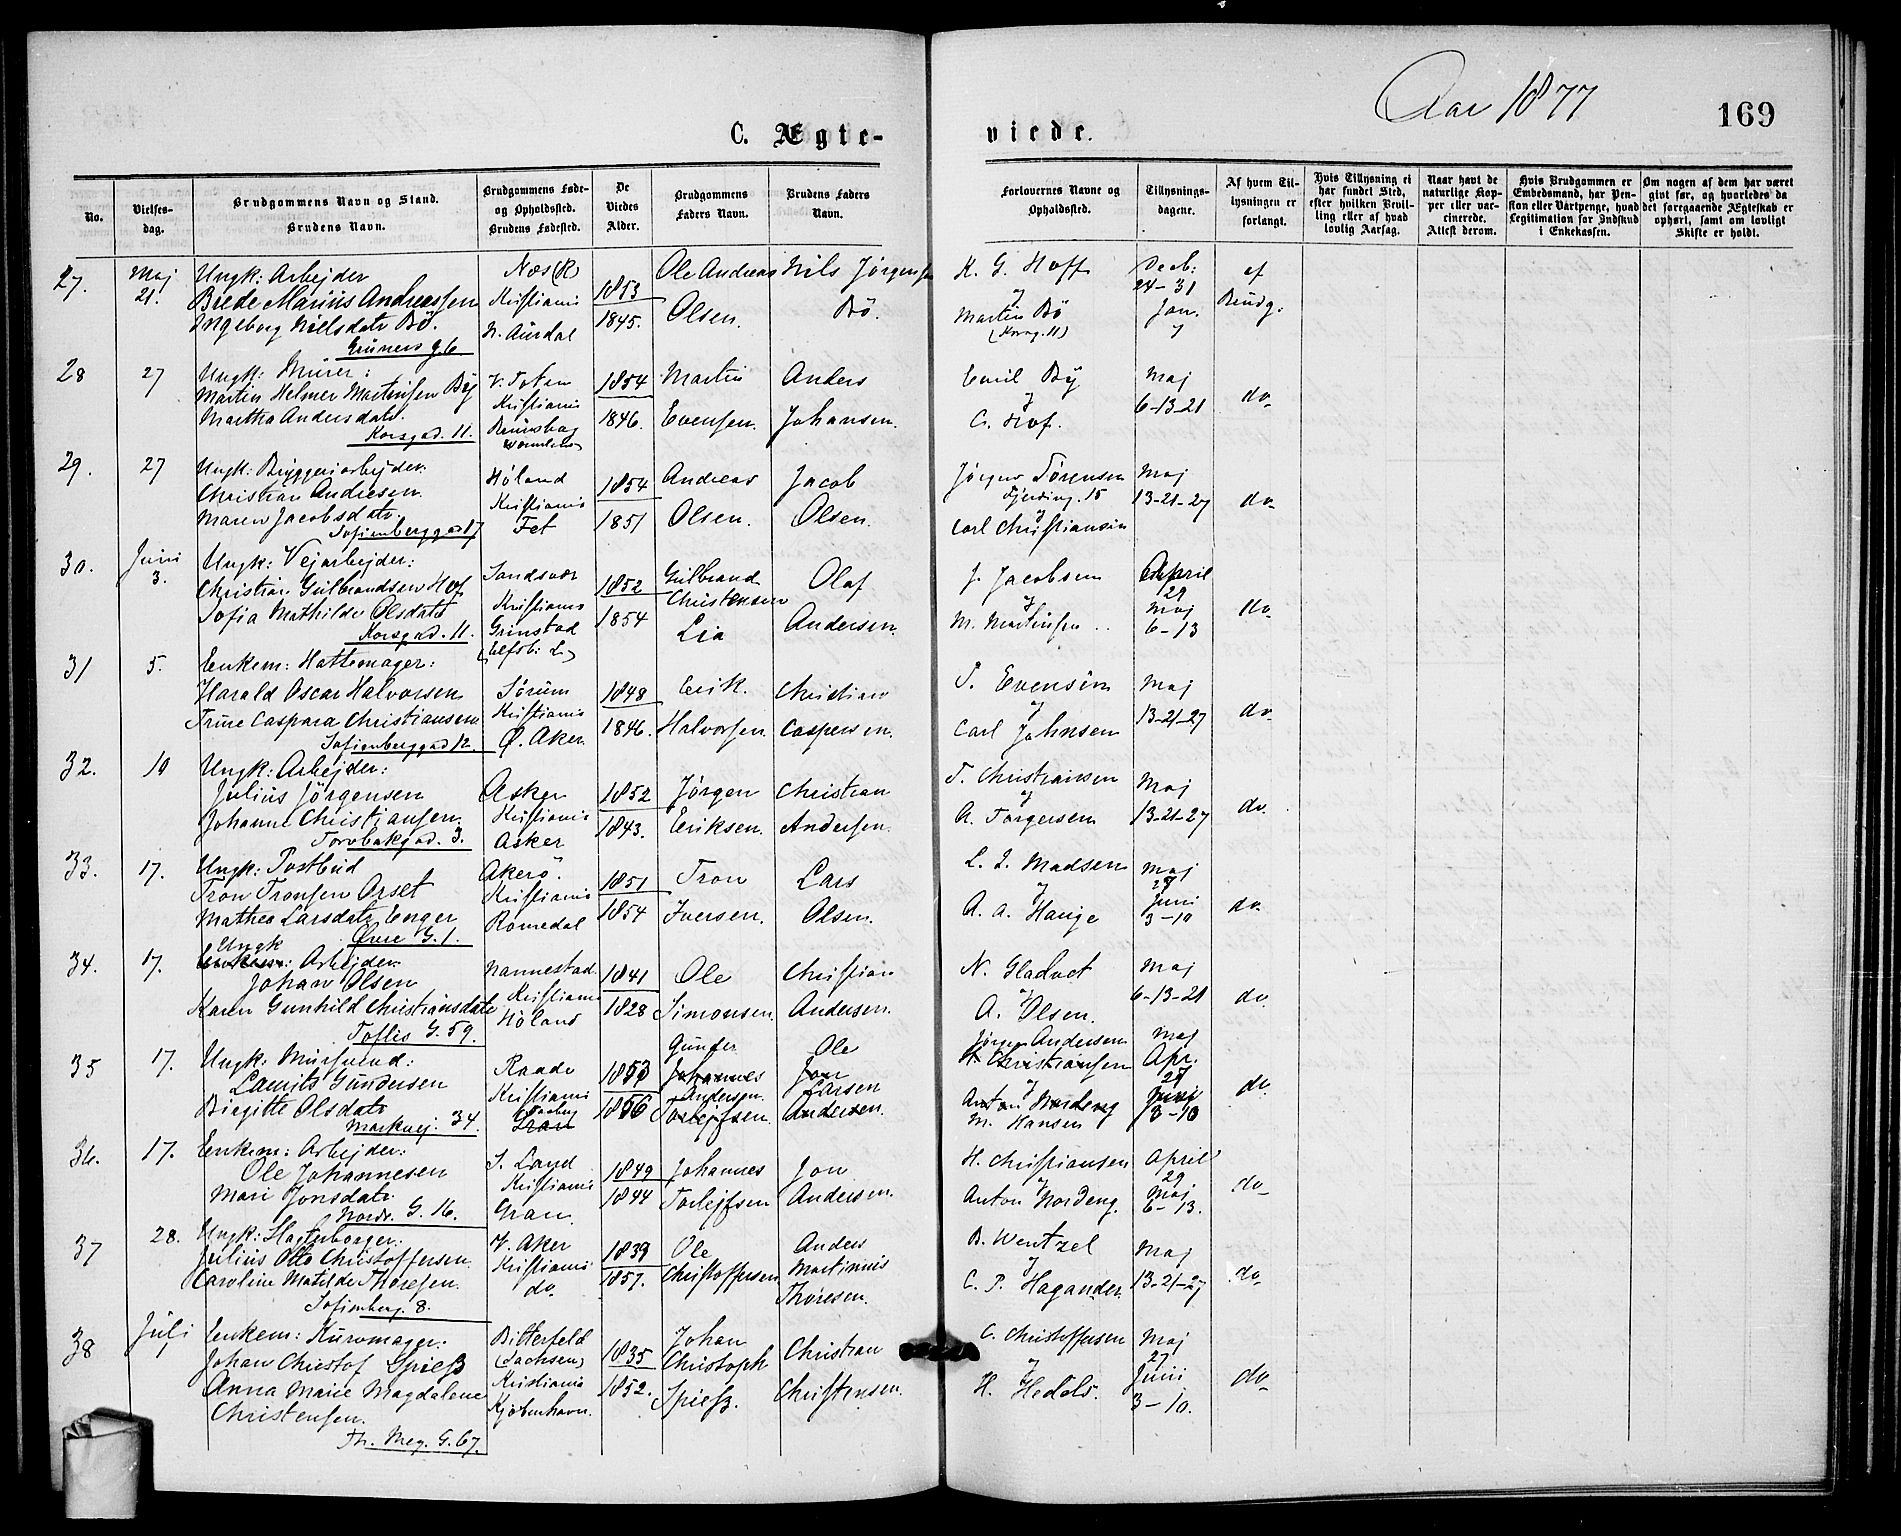 Aar 1877
169
C. Ægte-
viede.
No.
Vielses-
dag.
Brudgommens Navn og Stand.
Brudens Navn.
Brudgommens Føde-
og Opholdssted.
Brudens Fødested.
De
Viedes
Alder.
Brudgommens
Faders Navn.
Brudens Faders
Navn.
Forlovernes Navne og
Opholdssted.
Tillysnings-
dagene.
Af hvem Til-
lysningen er
forlangt.
Hvis Tillysning ei
har fundet Sted,
efter hvilken Bevil-
ling eller af hvad
lovlig Aarsag.
Naar havt de
naturlige Kop-
per eller vac-
cinerede.
Attest derom.
Hvis Brudgommen er
Embedsmand, har Pen-
sion eller Vartpenge, hvad
Legitimation for Indskud
i Enkekassen.
Om nogen af dem har været
gift før, og hvorledes da
det foregaaende Ægteskab er
ophørt, samt om lovligt
Skifte er holdt.
27. Maj 21. Ungk: Arbejder
Brede Marius Andreassen
Ingeborg Nielsdatr Bö.
Grüners g. 6
Næs (R)
Kristiania
N. Aurdal
1853
1845.
Ole Andreas
Olsen.
Nils Jörgensen
Bö.
K. G. Hoff
og
Martin Bö
(Korsg. 11)
Decb:
24-31
Jan.
7
af
Brudg.
28 27 Ungk: Murer:
Martin Helmer Martinsen By
Martha Andersdatr.
Korsgad. 11.
V. Toten
Kristiania
1854
1846.
Martin
Evensen.
Anders
Johansen.
Emil By
og
C. Hof.
Maj
6-13-21
do.
29. 27 Ungk: Bryggeriarbejder.
Christian Andresen.
Maren Jacobsdatr.
Sofienberggad 17
Höland
Kristiania
Fet
1854
1851
Andreas
Olsen.
Jacob
Olsen.
Jörgen Sörensen
Fjerding. 15
og
Carl Christiansen
Maj
13-21-27
do.
30. Juni 3. Ungk: Vejarbejder:
Christian Gulbrandsen Hof
Sofia Mathilde Olsdatr
Korsgad. 11.
Sandsvær
Kristiania
Grinstad
1852
1854
Gulbrand
Christensen
Lia
Olaf
Andersen.
J. Jacobsen
og
M. Martinsen
April
29
Maj
6-13
do.
31 5. Enkem: Hattemager:
Harald Oscar Halvorsen
Trine Caspara Christiansen
Sofienberggad 12.
Sörum
Kristiania
Ø. Aker.
1848
1846.
Erik
Halvorsen.
Christian
Caspersen.
P. Evensen
og
Carl Johnsen
Maj
13-21-27
do.
32. 10 Ungk: Arbejder:
Julius Jörgensen
Johanne Christiansen.
Torvbakgad. 3.
Asker
Kristiania
Asker
1852
1843.
Jörgen
Eriksen.
Christian
Andersen.
T. Christiansen
og
A. Torgersen
Maj
13-21-27
do.
33. 17. Ungk: Postbud
Tron Tronsen Orset
Mathea Larsdatr Enger
Øvre G. 1.
Akerö.
Kristiania
Romedal
1851
1854
Tron
Iversen.
Lars
Olsen.
L. J. Madsen
og
A. A. Hauge
Maj
27
Juni
3-10
do.
34. 17. Ungk
Enkem: Arbejder.
Johan Olsen
Karen Gunhild Christiansdatr
Toftes G. 59.
Nannestad
Kristiania
Höland
1841
1828
Ole
Simonsen.
Christian
Andersen.
N. Gladvet
og
A. Olsen.
Maj
6-13-21
do.
35 17. Ungk: Mursvend:
Laurits Gundersen
Birgitte Olsdatr
Markvej. 34.
Raade
Kristiania
Gran
1853
1856
Gunder
Johannes
Andersen.
Torlejfsen.
Ole
Jon
Larsen
Andersen.
Jörgen Andersen
H. Christiansen
og
Anton Nordeng
M. Hansen
Maj
Apr.
27
Juni
3-10
do.
36. 17. Enkem: Arbejder:
Ole Johannesen
Mari Jonsdatr.
Nordr. G. 16.
S. Land
Kristiania
Gran.
1849
1844
Johannes
Torlejfsen
Jon
Andersen.
H. Christiansen
og
Anton Nordeng.
April
29
Maj
6-13.
do.
37 28. Ungk:
Julius Otto Christoffersen.
Caroline Matilde Thoresen.
Sofienberg. 8.
V. Aker
Kristiania
do.
1839
1857.
Ole
Christoffersen
Anders
Martinius
Thoresen.
B. Wentzel
og
C. P. Hagander.
Maj
13-21-27
do.
38 Juli 1 Enkem: Kurvmager:
Johan Christof Spiesz
Anna Marie Magdalene
Christensen.
Th. Mey. G. 67.
Bitterfeld
(Sachsen)
Kristiania
Kjöbenhavn.
1835
1852.
Johan
Christoph
Spiesz.
Christian
Christensen.
C. Christoffersen
og
H. Hedels.
Maj
27
Juni
3-10.
do.